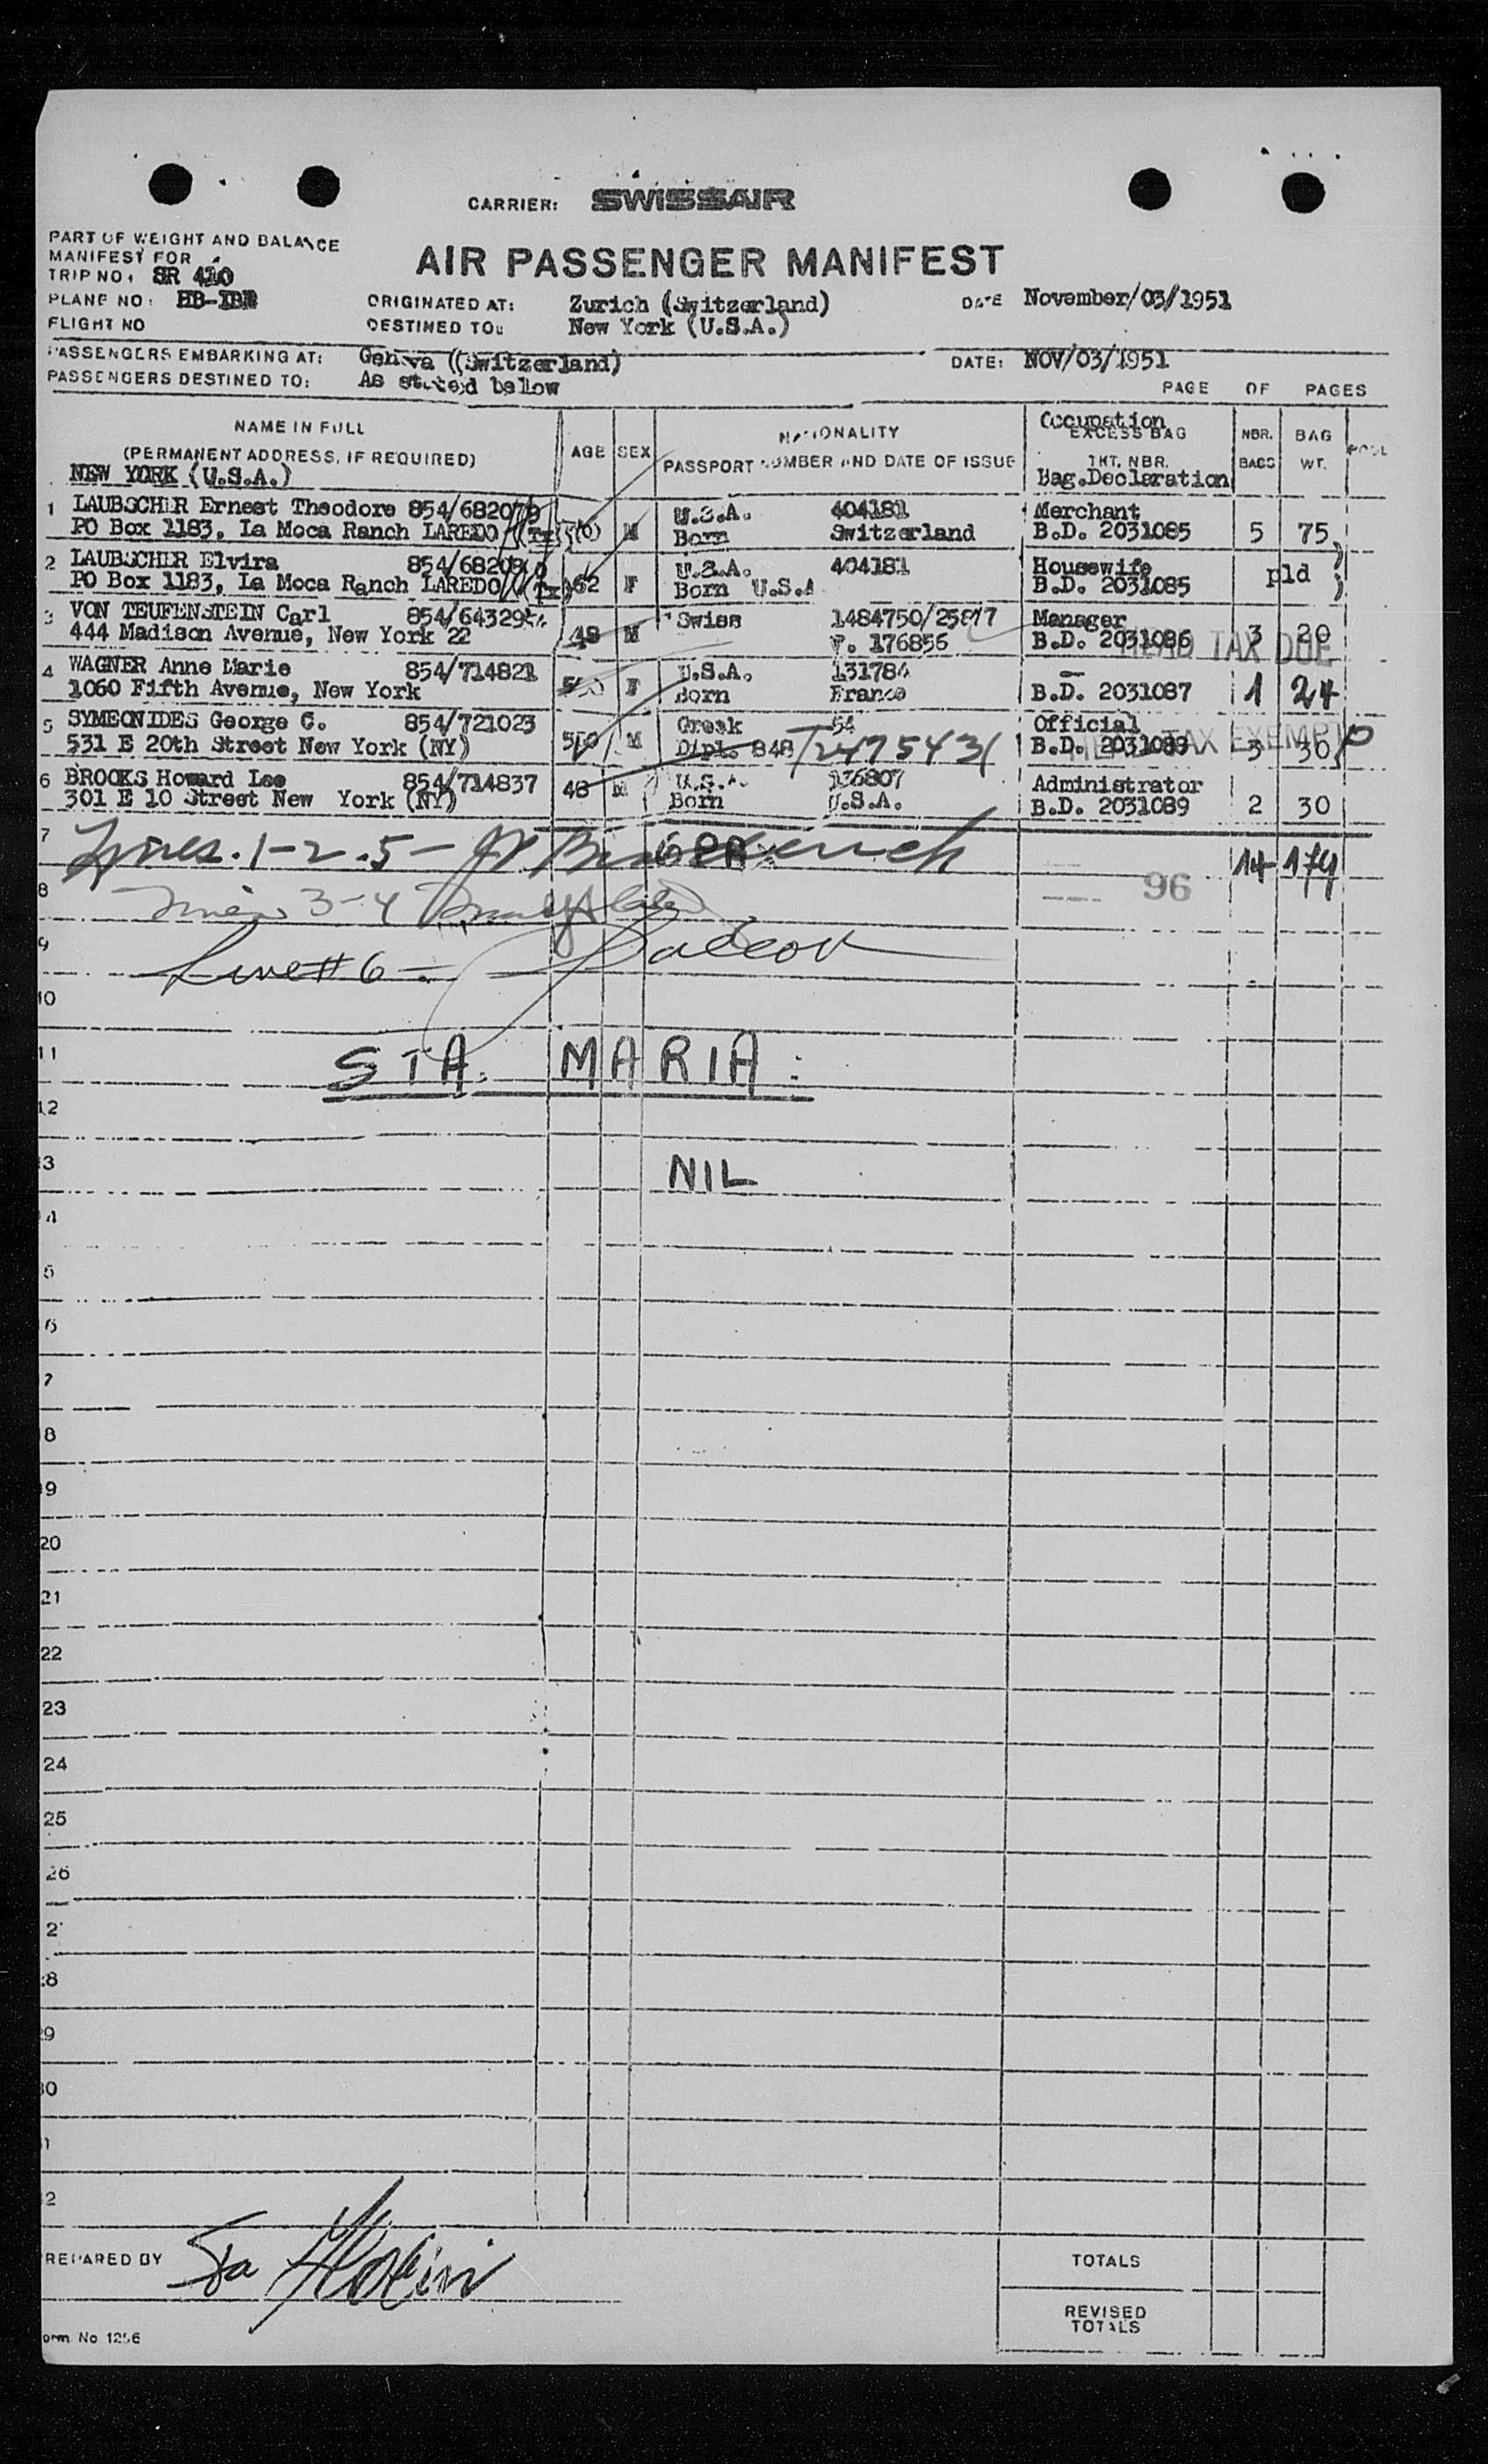 CARRIER: SWISSAIR
PART OF WEIGHT AND BALANCE
MANIFEST FOR
TRIP NO. SR 410
PLANE NO:
FLIGHT NO
AIR PASSENGER MANIFEST
ORIGINATED AT: Zurich (Switzerland) DATE November/03/1951
DESTINED TO: New York (U.S.A.)
PASSENGERS EMBARKING AT: Geneva ((Switzerland) DATE: NOV/03/1951
PASSENGERS DESTINED TO: As stated below
PAGE OF PAGES
NAME IN FULL
(PERMANENT ADDRESS, IF REQUIRED)
AGE SEX
NATIONALITY
PASSPORT NUMBER AND DATE OF ISSUE
Occupation
EXCESS BAG
TKT. NBR.
Bag.Declaration
NBR. BAGS
BAG WT.
NEW YORK (U.S.A.)
1 LAUBSCHER Ernest Theodore 854/682079 M U.S.A. 404181 Merchant
PO Box 1183, La Moca Ranch LAREDO (Tx) Born Switzerland B.D. 2031085 5 75)
2 LAUBSCHER Elvira 854/682080 62 F U.S.A. 404181 Housewife pld )
PO Box 1183, La Moca Ranch LAREDO (Tx) Born U.S.A B.D. 2031085 )
3 VON TEUFENSTEIN Carl 854/643295 48 M Swiss 1484750/25877 Manager
444 Madison Avenue, New York 22 P. 176856 B.D. 2031086 3 20
HEAD TAX DUE
4 WAGNER Anne Marie 854/714821 F U.S.A. 131784 —
1060 Fifth Avenue, New York Born France B.D. 2031087 1 24
5 SYMEONIDES George C. 854/721023 M Greek 54 Official
531 E 20th Street New York (NY) Dipl. 848 T2475431 B.D. 2031088 3 30 P
HEAD TAX EXEMPT
6 BROOKS Howard Lee 854/714837 48 M U.S.A. 136807 Administrator
301 E 10 Street New York (NY) Born U.S.A. B.D. 2031089 2 30
7 Lines. 1-2.5- 6 PAX 14 179
8 Lines 3-4 96
9 Line # 6 -
10
11 STA. MARIA:
12
3 NIL
4
5
6
7
8
9
20
21
22
23
24
25
26
2
28
29
30
1
2
PREPARED BY Sta
TOTALS
REVISED
TOTALS
Form No 1256